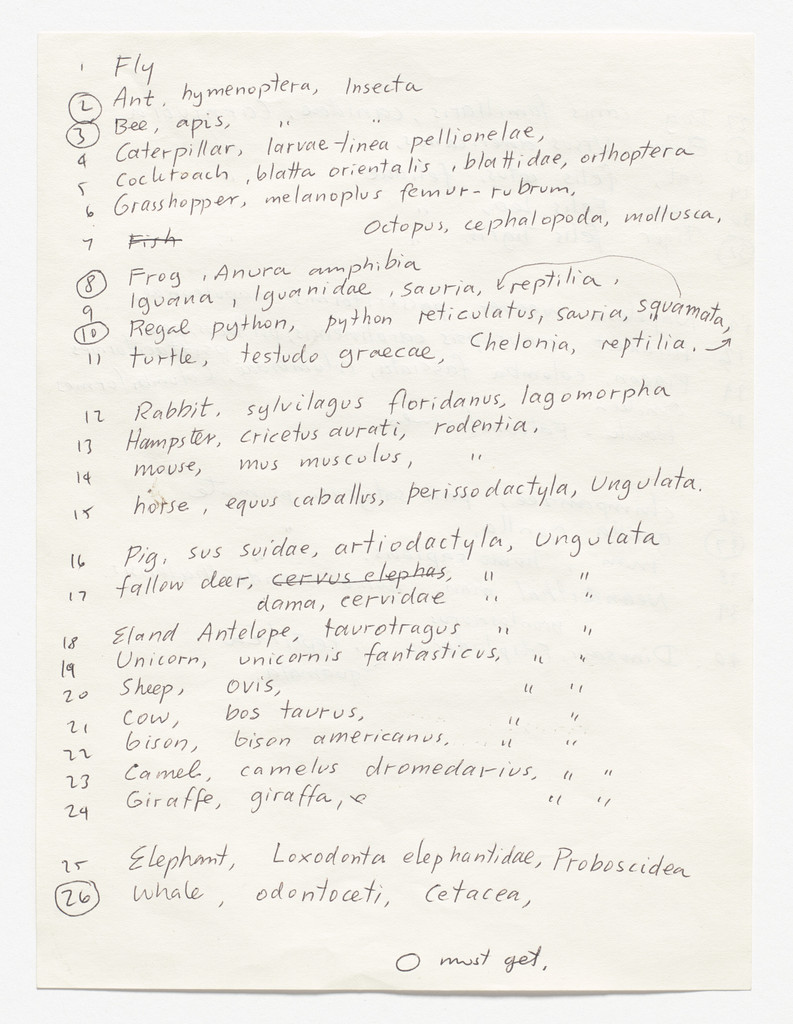 1 Fly
2 Ant, hymenoptera, Insecta
3 Bee, apis, " "
4 Caterpillar, larvae-tinea pellionelae,
5 Cocktoach, blatta orientalis, blattidae, orthoptera
6 Grasshopper, melanoplus femur-rubrum,
Octopus, cephalopoda, mollusca,
7 Fish
8 Frog, Anura amphibia
9 Iguana, Iguanidae, sauria, reptilia,
10 Regal python, python reticulatus, sauria, squamata,
11 turtle, testudo graecae, Chelonia, reptilia.
12 Rabbit, sylvilagus floridanus, lagomorpha
13 Hampster, cricetus aurati, rodentia,
14 mouse, mus musculus, "
15 horse, equus caballus, perissodactyla, Ungulata.
16 Pig, sus suidae, artiodactyla, Ungulata
17 fallow deer, cervus elephas, " "
dama, cervidae " "
18 Eland Antelope, taurotragus " "
19 Unicorn, unicornis fantasticus, " "
20 Sheep, ovis, " "
21 Cow, bos taurus, " "
22 bison, bison americanus, " "
23 Camel, camelus dromedarius, " "
24 Giraffe, giraffa, " "
25 Elephant, Loxodonta elephantidae, Proboscidea
26 Whale, odontoceti, Cetacea,
O must get.